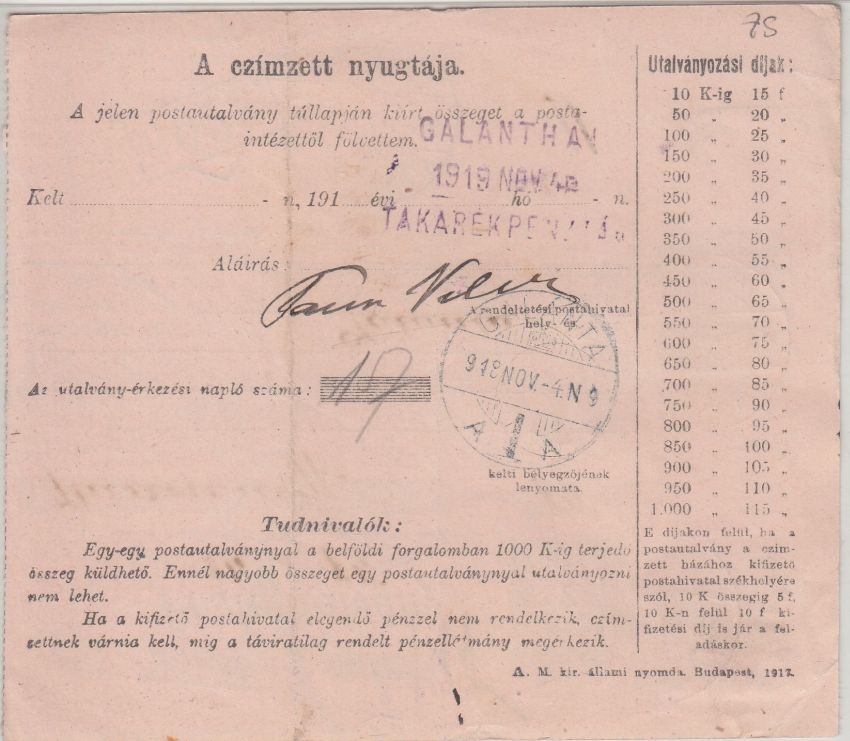 75
A czímzett nyugtája.
A jelen postautalvány túllapján kiírt összeget a posta-
intézettől fölvettem.
GALANTHAI
1919 NOV 4
TAKARÉKPÉNZTÁR
Kelt - n, 191 évi hó - n.
Aláírás:
A rendeltetési postahivatal
hely- és
918 NOV.-4.N 9
kelti bélyegzőjének
lenyomata.
Az utalvány-érkezési napló száma: 17
Tudnivalók:
Egy-egy postautalványnyal a belföldi forgalomban 1000 K-ig terjedő
összeg küldhető. Ennél nagyobb összeget egy postautalványnyal utalványozni
nem lehet.
Ha a kifizető postahivatal elegendő pénzzel nem rendelkezik, czím-
zettnek várnia kell, míg a táviratilag rendelt pénzellátmány megérkezik.
Utalványozási díjak:
10 K-ig 15 f
50 „ 20 „
100 „ 25 „
150 „ 30 „
200 „ 35 „
250 „ 40 „
300 „ 45 „
350 „ 50 „
400 „ 55 „
450 „ 60 „
500 „ 65 „
550 „ 70 „
600 „ 75 „
650 „ 80 „
700 „ 85 „
750 „ 90 „
800 „ 95 „
850 „ 100 „
900 „ 105 „
950 „ 110 „
1.000 „ 115 „
E díjakon felül, ha a
postautalvány a czím-
zett házához kifizető
postahivatal székhelyére
szól, 10 K összegig 5 f,
10 K-n felül 10 f ki-
fizetési díj is jár a fel-
adáskor.
A. M. kir. állami nyomda. Budapest, 1917.